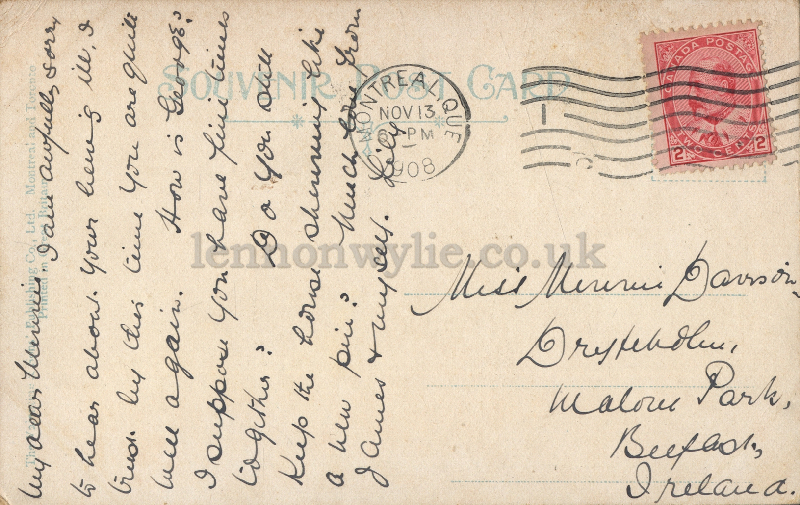 My dear Minnie, I am awfully sorry
to hear about your being ill, I
trust by this time you are quite
well again. How is George?
I suppose you have fine times
together? Do you still
keep the house shinning like
a new pin? Much love from
James & myself. Lily
SOUVENIR POST CARD
MONTREAL QUE
NOV 13
6 PM
1908
CANADA POSTAGE
TWO CENTS
2 2
Miss Minnie Davison,
Malone Park,
Belfast,
Ireland.
Publishing Co., Ltd., Montreal and Toronto
Printed in Great Britain
lennonwylie.co.uk